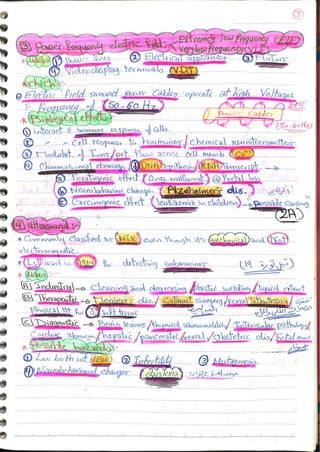 [3] Power frequency electric field:- Extremely low frequency ELF
Very low frequency VLF
* Uses ① Power lines ② Electrical appliances ③ Motors
④ Video display terminals VDT
* Ch.ch
① Electric Field around power cables operate at high Voltages
& frequency of 50-60 Hz
Power cables
(50-60Hz)
* Biological effects
① Interact & response of cells.
② Cell response to hormones / chemical neurotransmitters
③ Modulat. of Ions / prt. flow across cell memb
④ Chromosomal damage DNA synthesis RNA transcript
ⓐ Teratogenic effect (Cong malformat) & foetal loss
ⓑ Neurobehaviour changes Alzeheimer's dis.
ⓒ Carcinogenic effect (leukaemia in children) → possible Carcing
2A
[4] Ultrasound :-
* Commonly classified as NIR even though it's mechanical and Not
electromagnetic.
* 1st used in Wars & detecting submarines
* Uses
[A] Industrial → Cleaning and degreasing / plastic welding / liquid
[B] Therapeutic → Meniere's dis. / Cataract surgery / renal lithotripsy
Physical ttt for soft tissue
[C] Diagnostic → Brain lesions / thyroid abnormalities / Intraocular pathology
Cardiac abnorm / hepatic / pancreatic / renal / obstetric dis / Fetal
* Possible hazards:
① Low birth wt. LBW ② Infertility ③ Mutagenesis
④ Neurobehavioral changes (dyslexia)